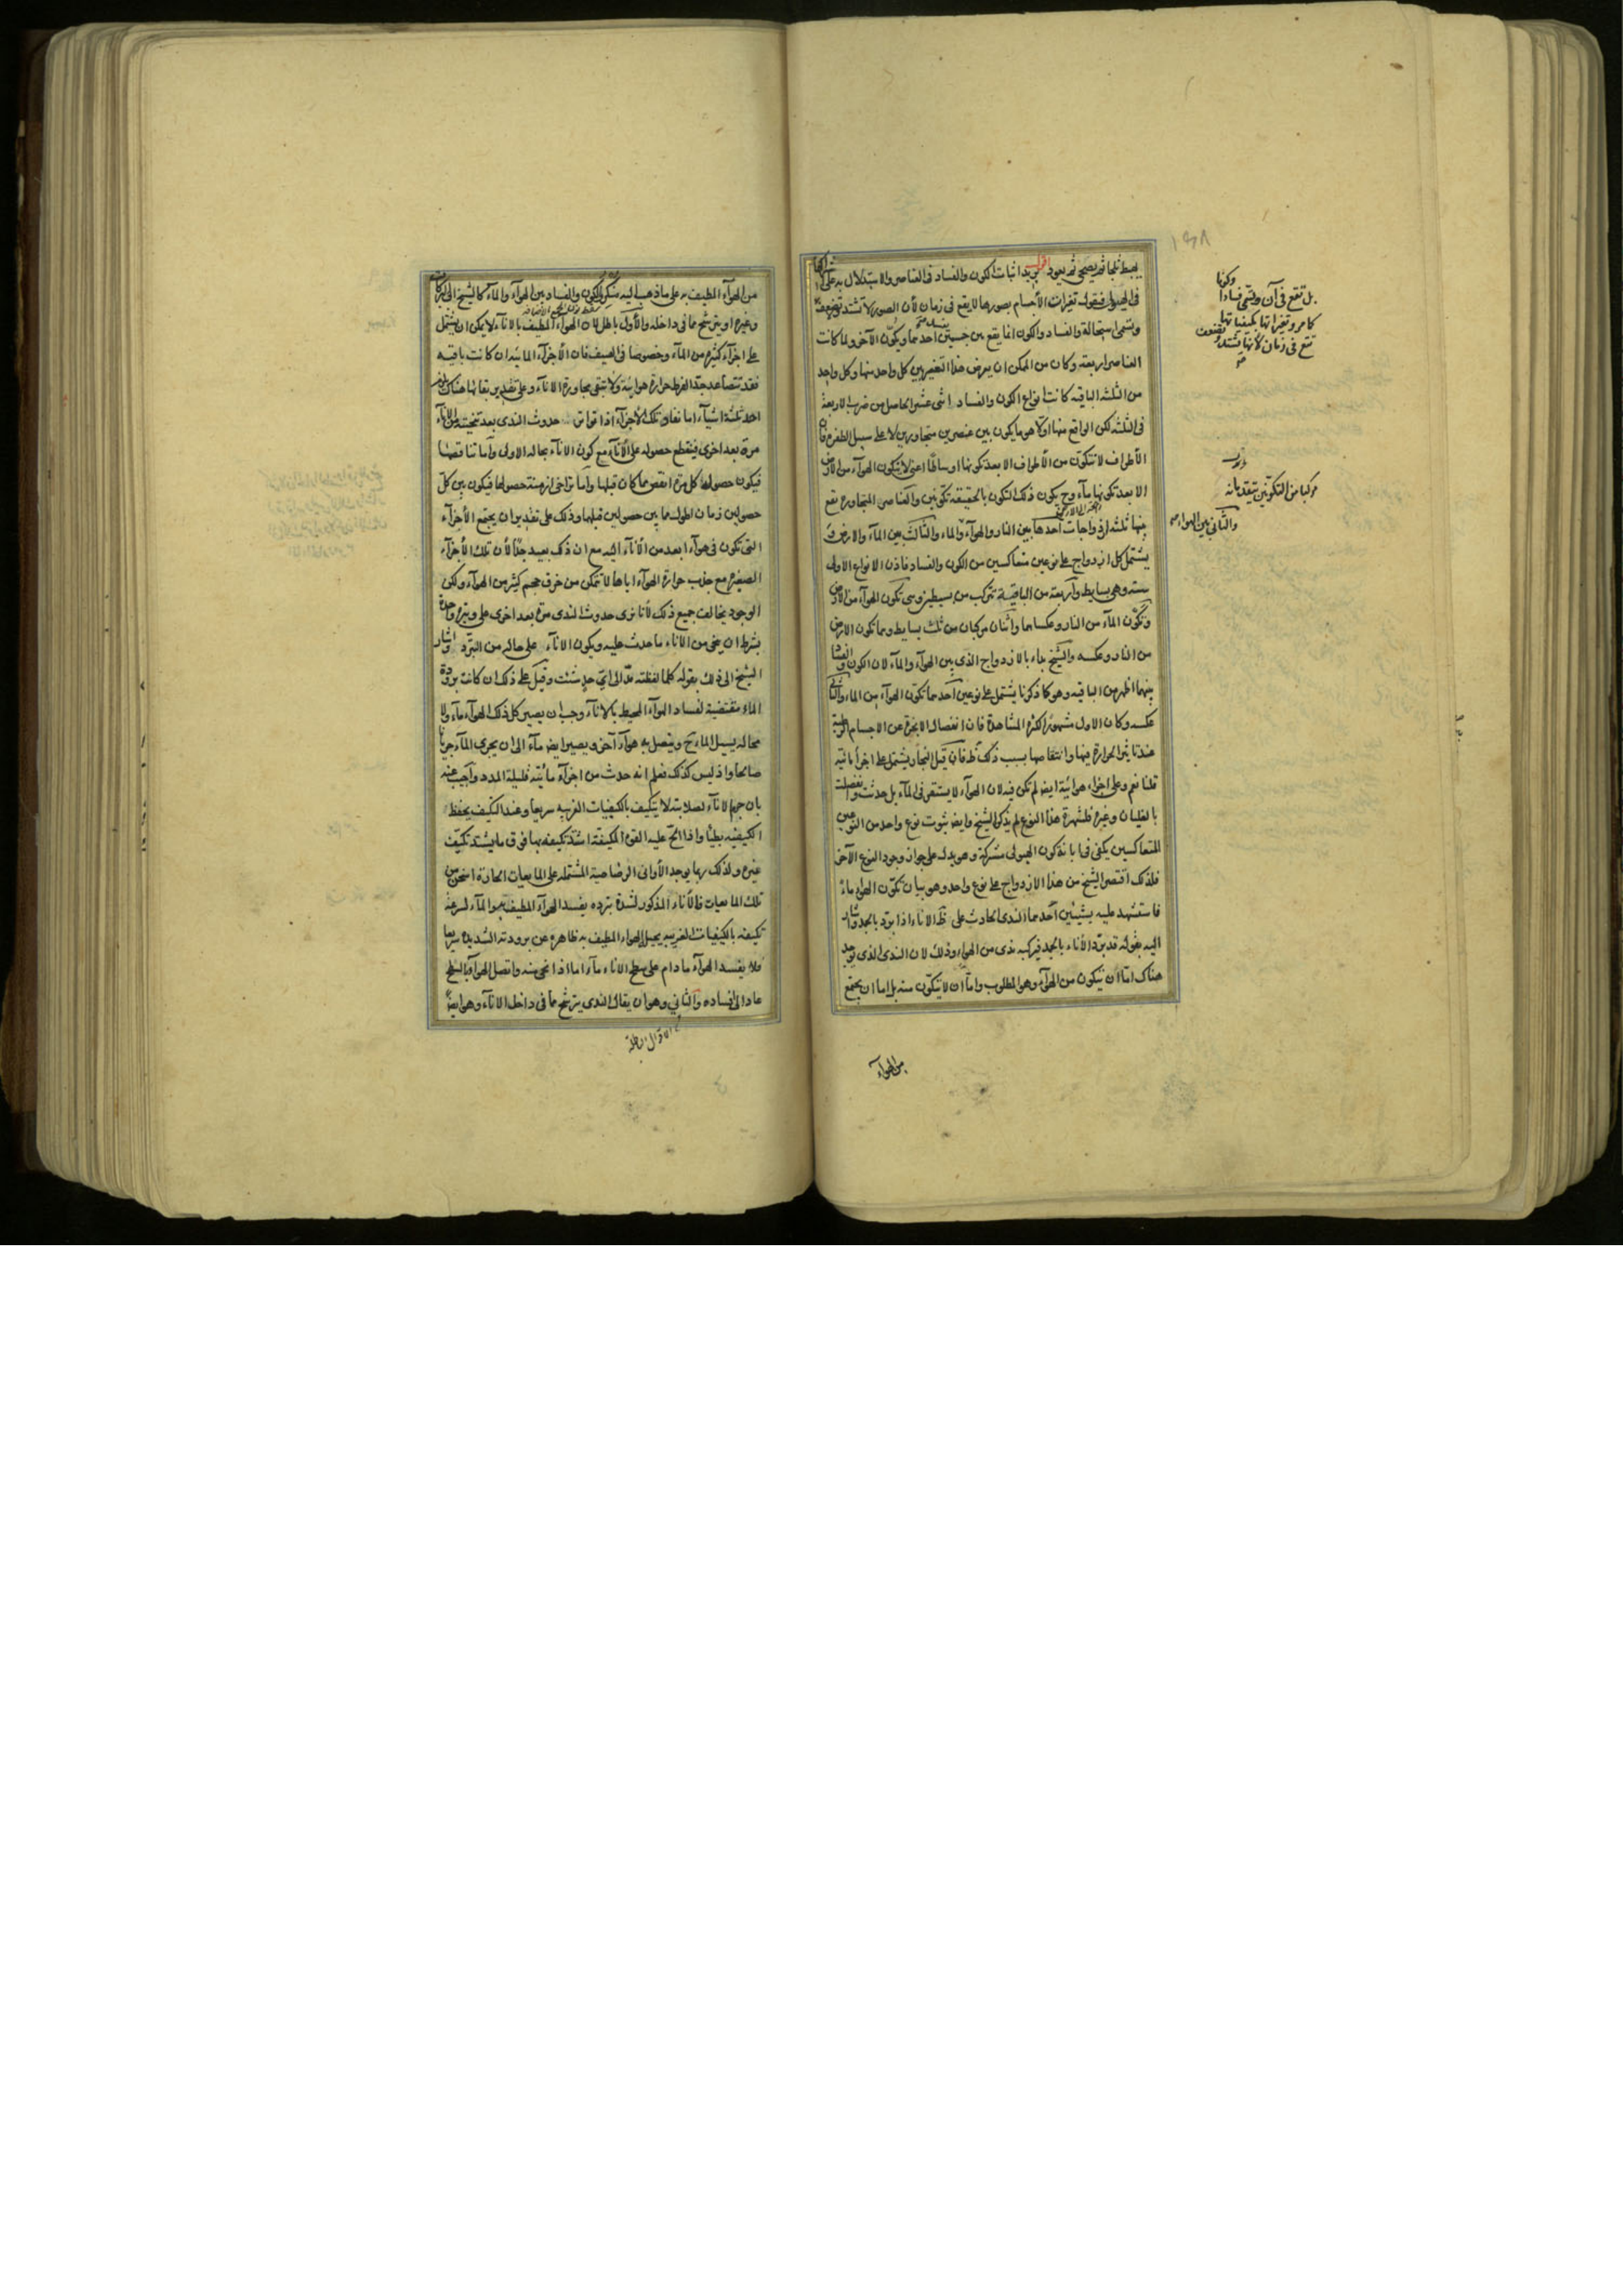 يهبط ثلجا ثم يصحي ثم يعود اقول يريد اثبات الكون والفساد فى العناصر والاستدلال به على اشتراكها
فى الهيولى فنقول تغيرات الأجسام بصورها لا يقع فى زمان لأن الصور لا تشتد ولا تضعف
وتسمى استحالة والفساد والكون انما يقع بين جسمين يفسد احدهما ويكون الآخر ولما كانت
العناصر اربعة وكان من الممكن ان يعرض هذا التغير بين كل واحد منها وكل واحد
من الثلثة الباقية كانت انواع الكون والفساد اثنى عشر الحاصل من ضرب الاربعة
فى الثلثة لكن الواقع منها اولا هو ما يكون بين عنصرين متجاورين لا على سبيل الطفرة فان
الأطراف لا تتكون من الأطراف الا بعد تكونها اوساطا اعنى لا يتكون الهوآء من الأرض
الا بعد تكونها مآء وح يكون ذلك التكون بالحقيقة تكونين والعناصر المتجاورة يقع
بينها ثلثة ازدواجات أحدها بين النار والهوآء والماء والثالث بين المآء والارض و
يشتمل كل ازدواج على نوعين متعاكسين من الكون والفساد فاذن الانواع الاولى
ستة وهى بسايط وأربعة من الباقية تتركب من بسيطين وهى تكون الهوآء من الأرض
وتكون المآء من النار وعكساهما واثنان مركبان من ثلث بسايط وهما تكون الارض
من النار وعكسه والشيخ بدء بالازدواج الذى بين الهوآء والمآء لان الكون والفساد
بينهما اظهر من الباقية وهو كما ذكرنا يشتمل على نوعين أحدهما تكون الهوآء من الماء والثانى
عكسه وكان الاول مشهورا لكثرة المشاهدة فان انفصال الابخرة عن الاجسام الرطبة
عند تاثير الحرارة فيها وانتقاصها بسبب ذلك ظ فان قيل البخار يشتمل على اجزآء مائية
قلنا نعم وعلى اجزاء هوائية ايض لم تكن فيه لان الهوآء لا يستقر فى المآء بل حدثت وانفصلت
بالغليان وغيره فلشهرة هذا النوع لم يذكره الشيخ وايض ثبوت نوع واحد من النوعين
المتعاكسين يكفى فى ابانة كون الهيولى مشتركة وهو يدل على جواز وجود النوع الآخر
فلذلك اقتصر الشيخ من هذا الازدواج على نوع واحد وهو بيان تكون الهواء ماء
فاستشهد عليه بشيئين أحدهما الندى الحادث على ظ الاناء اذا برد بالجمد واشار
اليه بقوله قد يبرد الأناء بالجمد فيركبه ندى من الهواء وذلك لان الندى الذى يوجد
هناك اما ان يتكون من الهوآء وهو المطلوب واما أن لا يتكون منه بل اما ان يجتمع
من الهوآء
بل تقع فى آن وتسمى فسادا
وكونا
كما مر وتغيراتها بكيفياتها
تقع فى زمان لأنها تشتد وتضعف
مركبا من التكونين يتقدمانه
والثانى بين الهواء
من الهوآء المطيف به على ما ذهب اليه منكرو الكون والفساد بين الهوآء والمآء كالشيخ ابى البركات
وغيره او يترشح مما فى داخله والأول باطل لان الهوآء المطيف بالاناء لا يمكن ان يشتمل
على اجزآء كثيرة من المآء وخصوصا فى الصيف فان الأجزآء المائية ان كانت باقية
فقد تتصاعد جدا لفرط حرارة هوائية ولا تبقى مجاورة الانآء وعلى تقدير بقائها هناك يلزم
احد ثلثة اشيآء اما نفاد تلك الأجزآء اذا تواتر حدوث الندى بعد تنحيته من الانآء
مرة بعد اخرى فينقطع حصوله على الأنآء مع كون الاناء بحاله الاولى وأما تناقصها
فيكون حصولها كل مرة انقص مما كان قبلها وأما تراخى ازمنة حصولها فيكون بين كل
حصولين زمان اطول مما بين حصولين قبلهما وذلك على تقدير ان يجتمع الأجزآء
التى تكون فى هوآء ابعد من الأنآء اليه مع ان ذلك بعيد جدا لأن تلك الأجزآء
الصغيرة مع جذب حرارة الهوآء اياها لا تتمكن من خرق حجم كثير من الهوآء ولكن
الوجود يخالف جميع ذلك لأنا نرى حدوث الندى مرة بعد اخرى على وتيرة واحدة
بشرط ان ينحى من الاناء ما حدث عليه ويكون الانآء على حاله من التبرد واشار
الشيخ الى ذلك بقوله كلما لقطته مد الى اى حد شئت وقيل على ذلك ان كانت برودة
الماء مقتضية لفساد الهوآء المحيط بالانآء وجب ان يصير كل ذلك الهوآء مآء ولا
محالة يسيل الماء ح ويتصل به هوآء آخر ويصير ايض مآء الى ان يجرى المآء جريا
صالحا واذ ليس كذلك فعلم انه حدث من اجزآء مائية قليلة المدد وأجيب عنه
بان جرم الانآء لصلابته لا يتكيف بالكيفيات الغريبة سريعا وعند التكيف يحفظ
الكيفية بطيئا واذا الح عليه القوة المكيفة اشتد تكيفه بها فوق ما يشتد تكيف
غيره ولذلك ربما يوجد الأوانى الرصاصية المشتملة على المايعات الحارة اسخن من
تلك المايعات فالأناء المذكور لشدة تبرده يفسد الهوآء المطيف به والمآء لسرعة
تكيفه بالكيفيات الغريبة يحيل الهواء المطيف به ظاهره عن برودته الشديدة سريعا
فلا يفسد الهوآء ما دام على سطح الاناء مآء اما اذا نحى منه واتصل الهوآء بالسطح
عاد الى افساده والثانى وهو ان يقال الندى يترشح مما فى داخل الانآء وهو ايضا